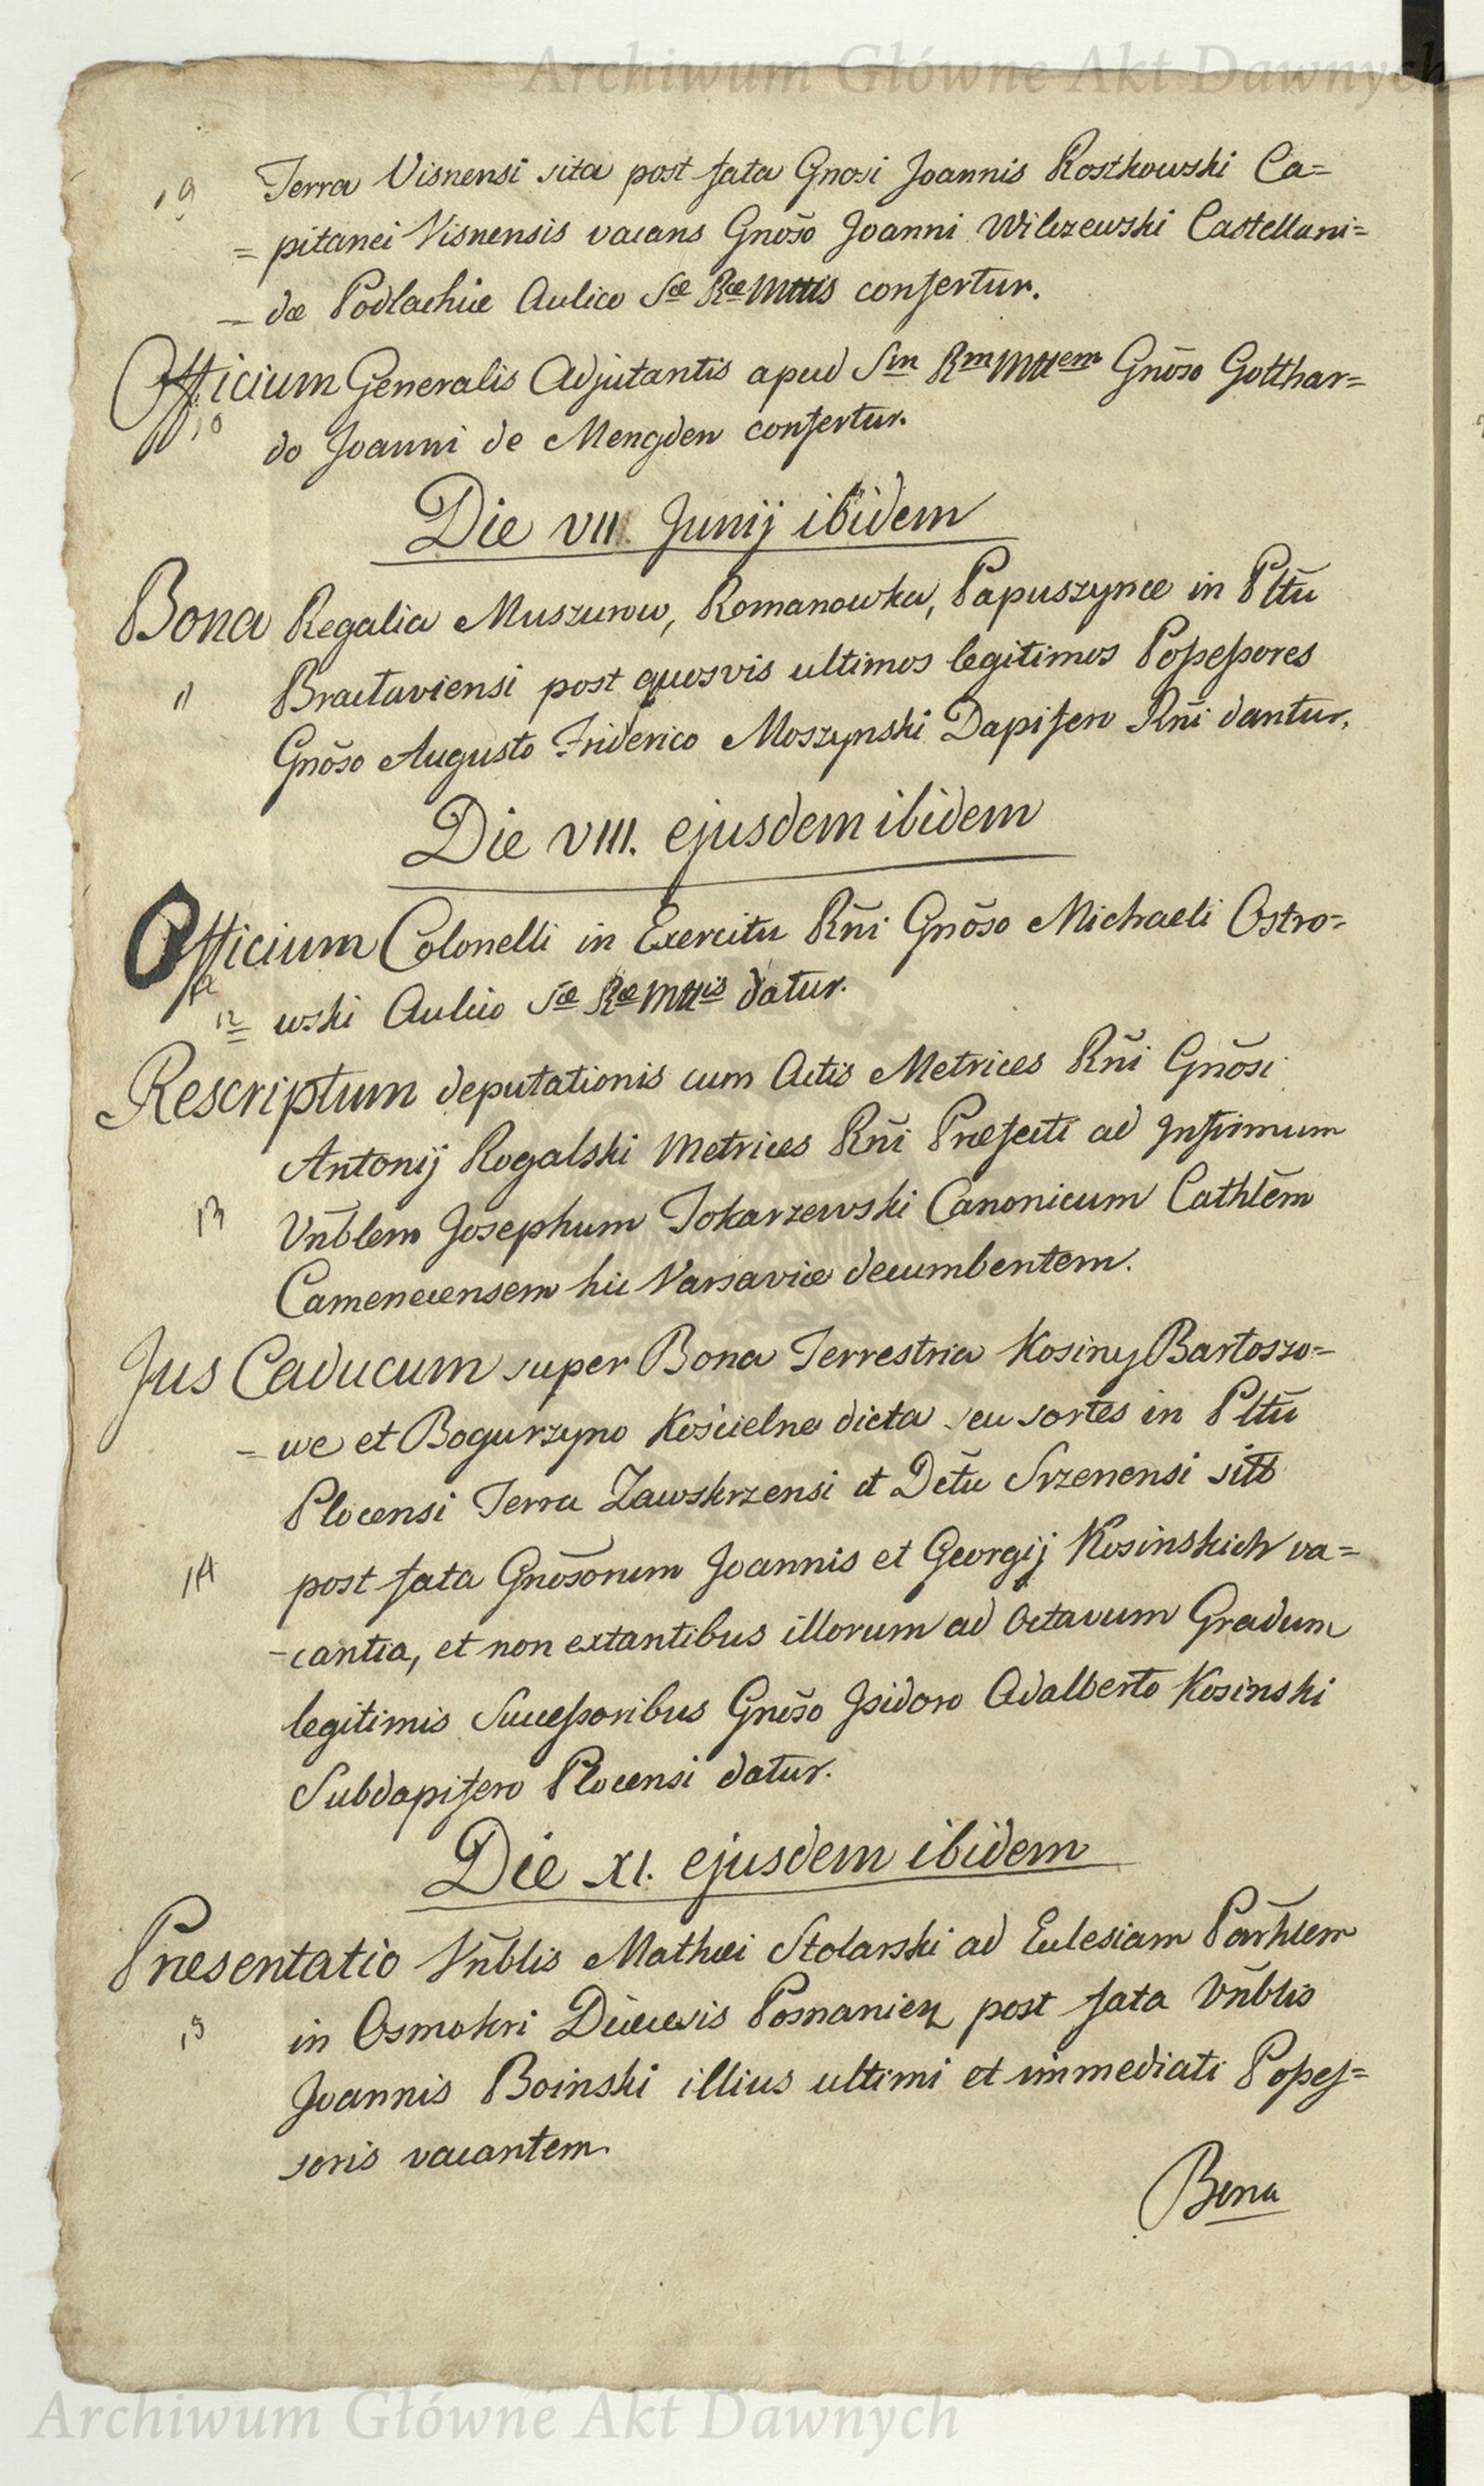 Archiwum Główne Akt Dawnych
19 Terra Visnensi sita post fata Gnosi Joannis Rostkowski Ca=
= pitanei Visnensis vacans Gnõso Joanni Wilczewski Castellani=
= dæ Podlachiæ Aulico Sæ Ræ Mttis confertur.
Officium Generalis Adjutantis apud Sm Rm Mttem Gnõso Gotthar=
10 do Joanni de Mengden confertur.
Die VII. Junij ibidem
Bona Regalia Muszurow, Romanowka, Papuszynce in Pltũ
11 Bractaviensi post quosvis ultimos legitimos Possessores
Gnõso Augusto Friderico Moszynski Dapifero Rñi dantur.
Die VIII. ejusdem ibidem
Officium Colonelli in Exercitu Rñi Gnõso Michaeli Ostro=
12 = wski Aulico Sæ Ræ Mttis datur.
Rescriptum deputationis cum Actis Metrices Rñi Gnõsi
Antonij Rogalski Metrices Rñi Præfecti ad Infirmum
13 Vñblem Josephum Tokarzewski Canonicum Cathlẽm
Camenecensem hic Varsaviæ decumbentem.
Jus Caducum super Bona Terrestria Kosiny Bartoszo=
= we et Bogurzyno Kościelne dicta seu sortes in Pltũ
Plocensi Terra Zawskrzensi et Dctũ Srzenensi sita
14 post fata Gnõsorum Joannis et Georgij Kosinskich va=
-cantia, et non extantibus illorum ad Octavum Gradum
legitimis Successoribus Gnõso Isidoro Adalberto Kosinski
Subdapifero Plocensi datur.
Die XI. ejusdem ibidem
Præsentatio Vñblis Mathæi Stolarski ad Eclesiam Parhlem
15 in Osmokri Diecesis Posnanien post fata Vñblis
Joannis Boinski illius ultimi et immediati Posses=
soris vacantem.
Bona
Archiwum Główne Akt Dawnych